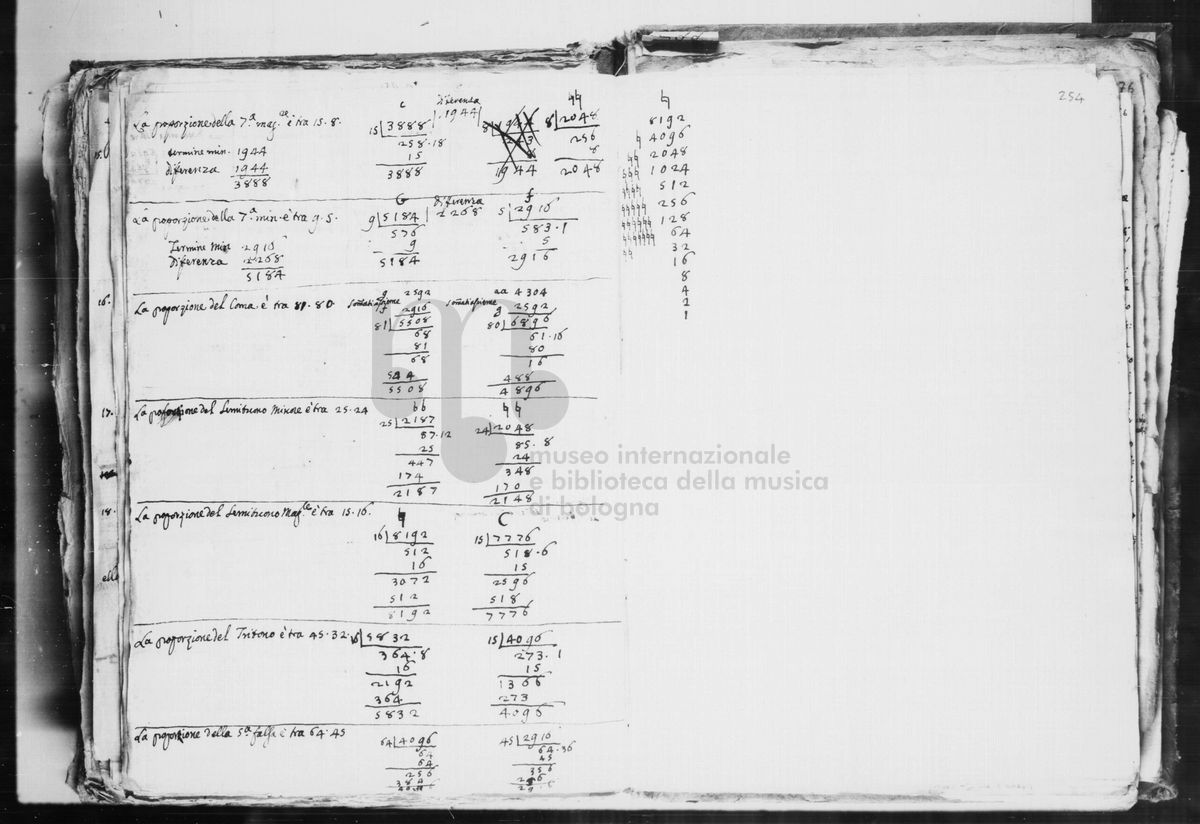 254
76
La proporzione della 7.ª mag.re è tra 15. 8.
termine min. 1944
diferenza 1944
3888
C
15 | 3888
258. 18
15
3888
diferenza
1944
8 | 1944
243
8
1944
♮♮
8 | 2048
256
8
2048
15.
La proporzione della 7.ª min. è tra 9. 5.
Termine min 2916
Diferenza 2268
5184
G
9 | 5184
576
9
5184
diferenza
2268
f
5 | 2916
583. 1
5
2916
16.
La proporzione del Coma è tra 81. 80
g 2592
f 2916
81 | 5508
68
81
68
544
5508
aa 4304
g 2592
80 | 6896
61. 16
80
16
488
4896
17.
La proporzione del Semituono Minore è tra 25. 24
bb
25 | 2187
87. 12
25
447
174
2187
♮♮
24 | 2048
85. 8
24
348
170
2148
18.
La proporzione del Semituono Mag.re è tra 15. 16.
♮
16 | 8192
512
16
3072
512
8192
C
15 | 7776
518. 6
15
2596
518
7776
ella
La proporzione del Tritono è tra 45. 32.
16 | 5832
364. 8
16
2192
364
5832
15 | 4096
273. 1
15
1366
273
4096
La proporzione della 5ª falsa è tra 64. 45
64 | 4096
64
64
256
384
45 | 2910
64. 36
45
356
♮
8192
♮ 4096
♮♮ 2048
1024
512
256
128
64
32
16
8
4
2
1
museo internazionale
e biblioteca della musica
di bologna